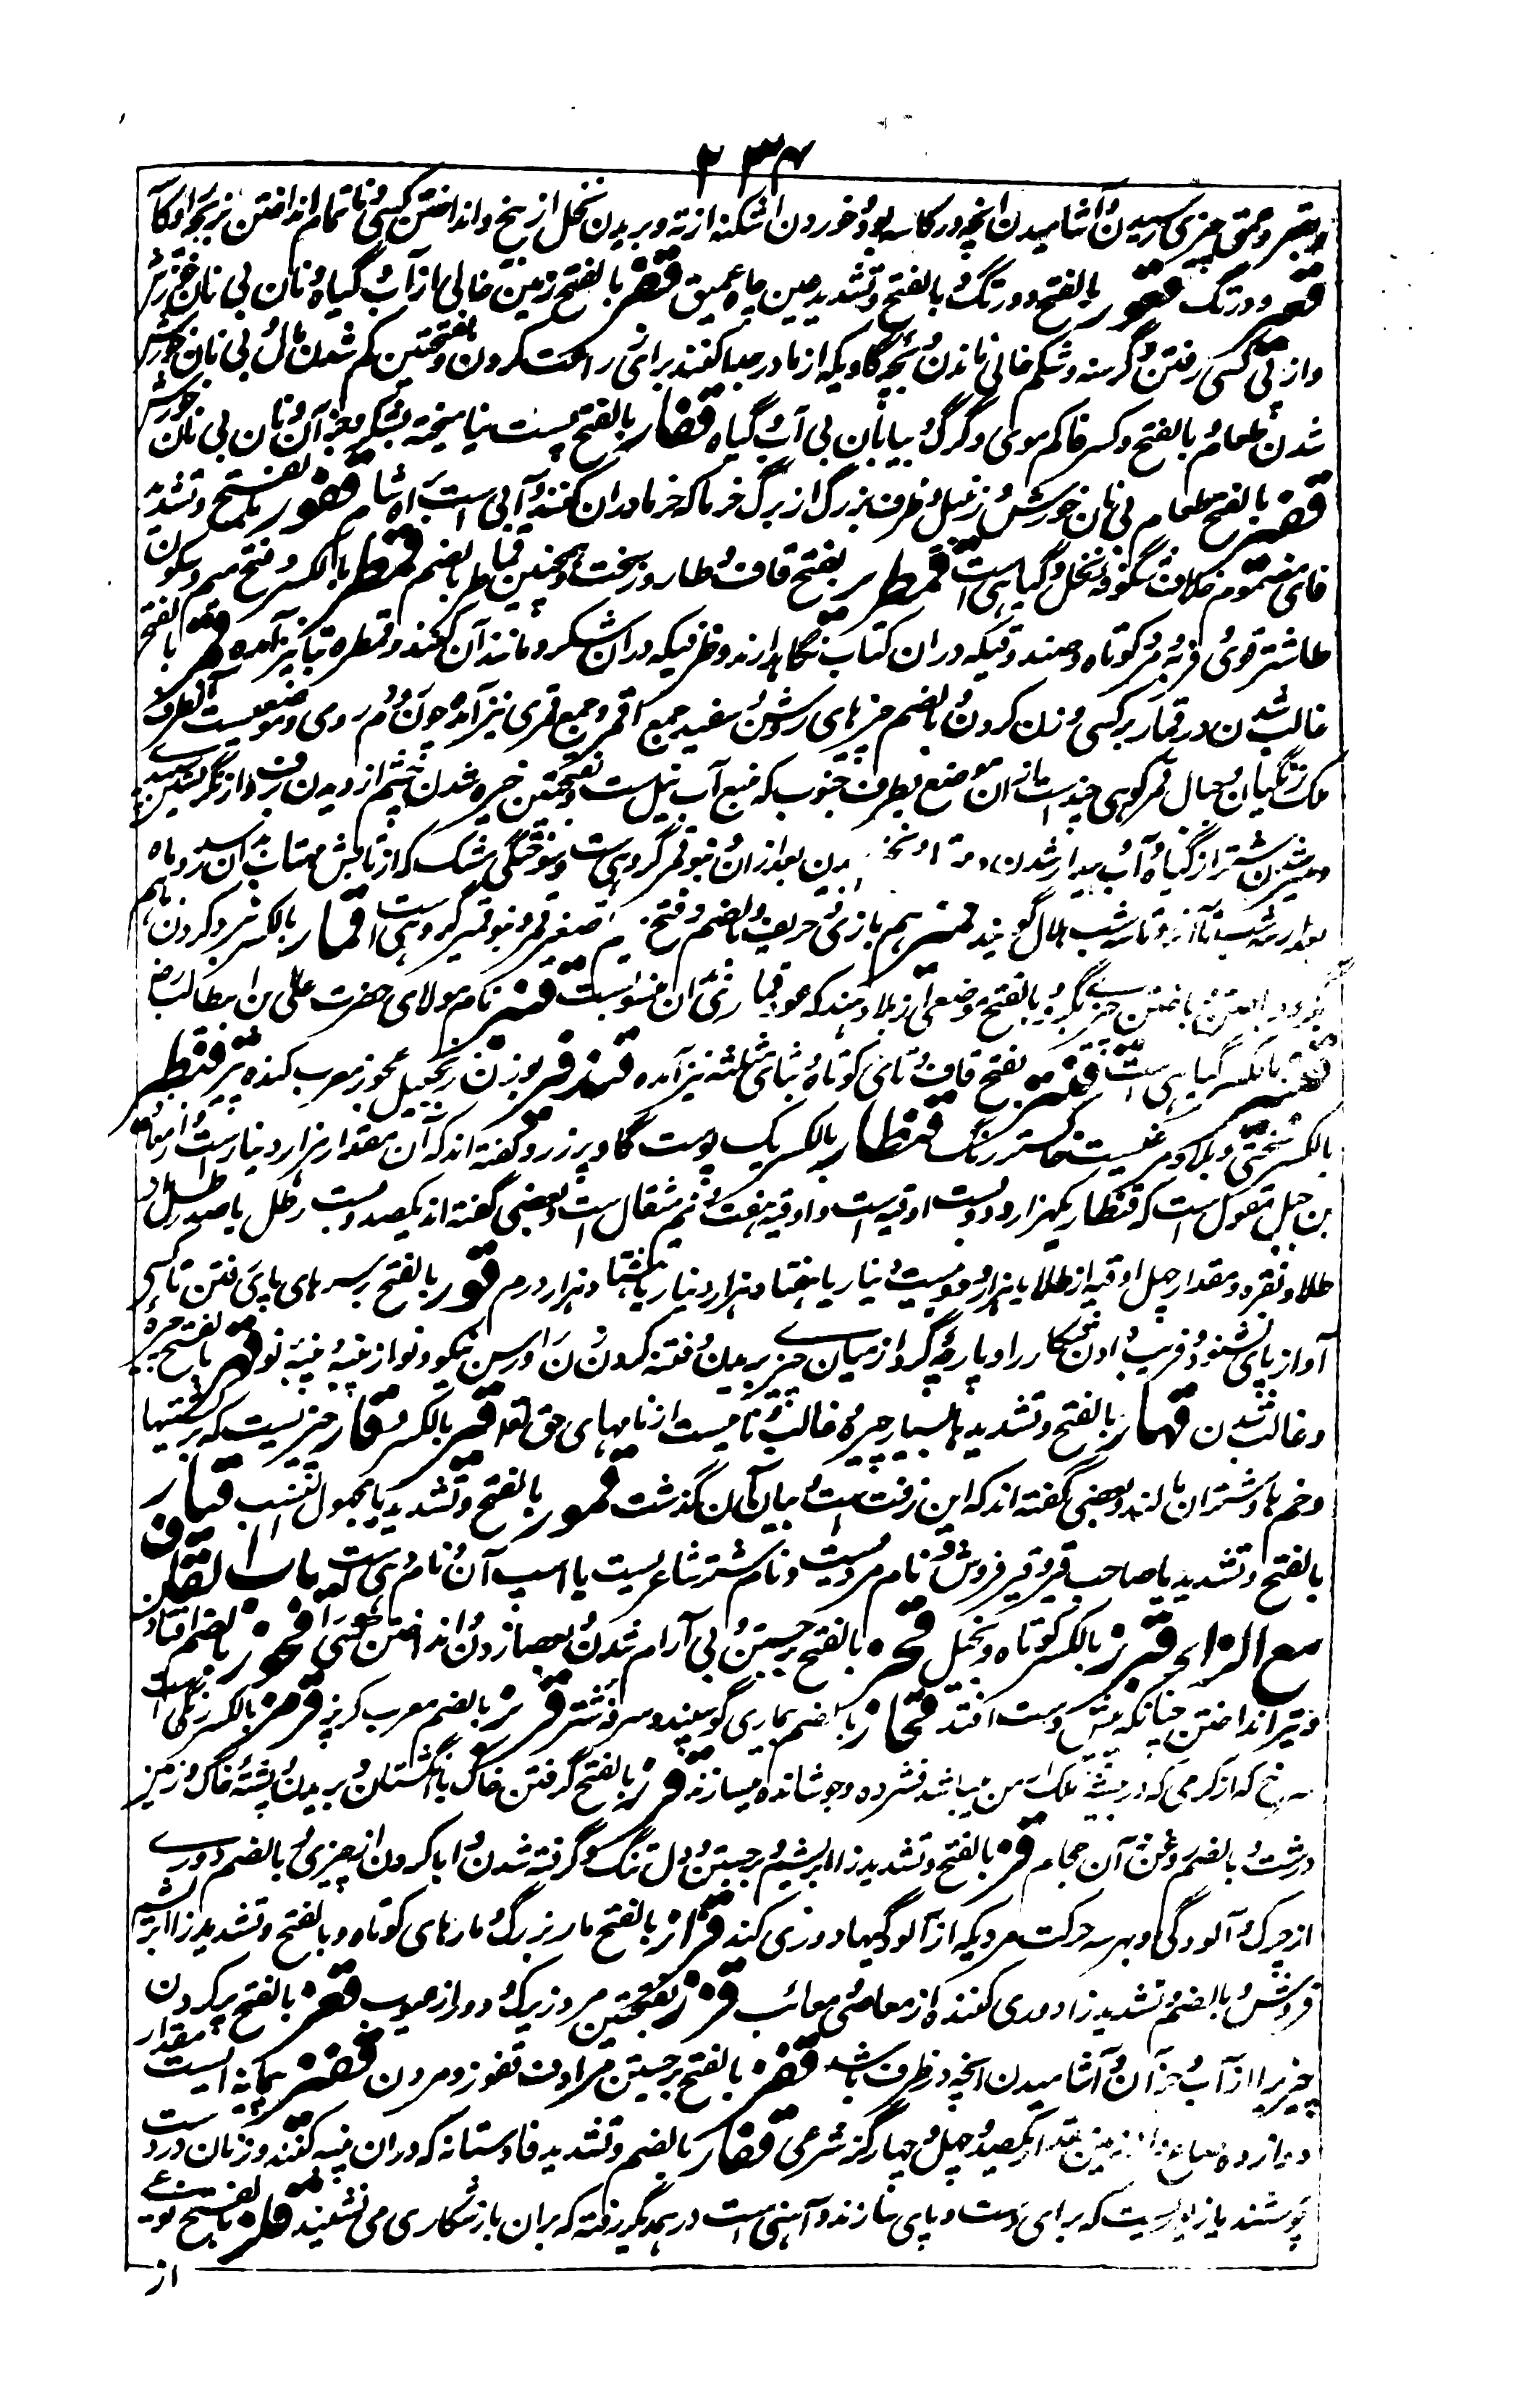 ۲۳۴
بقعر و عمق چیزی رسیدن و آشامیدن آنچه در کاسه بود و خوردن اشکنه از ته و بریدن نخل از بیخ و انداختن کسی و ناتمام انداختن بز بچه را
قعیر دورتگ قعور بالفتح دورتگ و بالفتح و تشدید عین چاه عمیق قفر بالفتح زمین خالی از آب و گیاه و نان بی نان خورش
و از پی کسی رفتن و گرسنه و شکم خالی ماندن و بچه گاویکه از مادر جدا کنند برای راعت کردن و بفتحتین کم شدن مال و بی نان خورش
شدن طعام و بالفتح و کسر فا کم موی و گرگ و بیابان بی آب و گیاه قفار بالفتح پست نیامیخته بشکر و بغیر آن و نان بی نان خورش
قفیر بالفتح طعام بی نان خورش و زنبیل و ظرف بزرگ از برگ خرما که خرما دران کنند و آبی است باه شام قفور بالفتح و تشدید
فای مضموم غلاف شگوفه نخل و گیاهی است قمطریر بفتح قاف و طا روز سخت و همچنین قماطر بالضم قمطر بالکسر و فتح میم و سکون
طا شتر قوی فربه و مرد کوتاه و صندوقیکه دران کتاب نگاهدارند و ظرفیکه دران شکر و مانند آن کنند و قمطره بتا نیز آمده قمر بالفتح
غالب شدن در قمار بر کسی و زن کردن و بالضم چیزهای روشن و سفید جمع اقمر و جمع قمری نیز آمده چون روم و رومی و موضعیست آنطرف
ملک زنگیان و جبال قمر کوهی چند است ازان موضع بطرف جنوب که منبع آب نیل است و بفتحتین خیره شدن چشم از دیدن برف و از نگریستن سپیدی
و سیر شدن شتر از گیاه و آب و بیدار شدن در بعد ازان و بنو قمر گروهی است و سوختگی مشک که از تابش مهتاب بآن رسد و ماه
بعد از سه شب تا آخر و تا سه شب هلال گویند قمیر هم بازی حریف و بالضم و فتح میم تصغیر قمر و بنو قمیر گروهی است قمار بالکسر گرو کردن باهم
باختن چیزی بگرو و بالفتح موضعی از بلاد هند که عود قماری بآن منسوبست قنبر نام مولای حضرت علی بن ابیطالب رض
قنبیر بالکسر گیاهی است قنتر بفتح قاف و تای کوتاه و بثای مثلثه نیز آمده قندفیر بوزن زنجبیل عجوز معرب کنده پیر قنطیر
بالکسر سختی و بلا و مرغیست خاکستر رنگ قنطار بالکسر یک پوست گاو پر زر و گفته اند که آن مقدار هزار دینار است و از معاذ
بن جبل منقول است که قنطار یکهزار و دویست اوقیه است و اوقیه هفت و نیم مثقال است و بعضی گفته اند یکصد و بیست رطل یا صد رطل
طلا و نقره و مقدار چهل اوقیه از طلا یا هزار و دویست دینار یا هفتاد هزار دینار یا هشتاد هزار درم قور بالفتح بر سر های پای رفتن تا کسی
آواز پای نشنود و فریب دادن شکار را و پارچه گرد از میان چیزی بریدن و فتنه کردن زن را و رسن نیکو و نو از پنبه و پنبه نو قهر بالفتح چیره
و غالب شدن قهار بالفتح و تشدید ها بسیار چیره و غالب و نامیست از نامهای حق تعالی قیر بالکسر و قار چیزیست که بر کشتیها
و خم ها و شتران مالند و بعضی گفته اند که این زفت است و بیان آن گذشت قیور بالفتح و تشدید یا مجهول النسب قیار
بالفتح و تشدید یا صاحب قیر و قیر فروش و نام مردیست و نام شتر شاعریست یا اسپ آن و نام دهی است باب القاف
مع الزای قبرز بالکسر کوتاه و بخیل قحز بالفتح برجستن و بی آرام شدن و بعصا زدن و انداختن کسی را قحوز بالضم افتادن
و تیر انداختن چنانکه پیش دست افتد قحاز بالضم بیماری گوسپند و سرفه شتر قربز بالضم معرب کربز قرمز بالکسر رنگی است
سرخ که از کرمی که در بیشه ملک ارمن میباشد فشرده و جوشانده میسازند قرز بالفتح گرفتن خاک بانگشتان و بریدن و پشته خاک و زمین
درشت و بالضم روشن آن حجام قز بالفتح و تشدید زا ابریشم و برجستن و دل تنگ و گرفته شدن و ابا کردن از چیزی و بالضم دوری
از چرک و آلودگی و بهر سه حرکت مردیکه از آلودگیها دوری کند قزاز بالفتح مار بزرگ و مارهای کوتاه و بالفتح و تشدید زا ابریشم
فروش و بالضم و تشدید زا دوری کننده از معاصی و معائب قزز بفتحتین مرد زیرک و دور از عیوب قعز بالفتح پر کردن
چیزی را از آب و جز آن و آشامیدن آنچه در ظرف باشد قفز بالفتح برجستن مرادف قفوز و مردن قفیز پیمانه ایست مقدار
دوازده صاع و از زمین بقدر یکصد و چهل و چهار گز شرعی قفاز بالضم و تشدید فا دستانه که دران پنبه کنند و زنان در دست
پوشند یا زیوریست که برای دست و پای سازند و آهنی است در همدیگر رفته که بران باز شکاری می نشیند قلز بالفتح نوعی
از